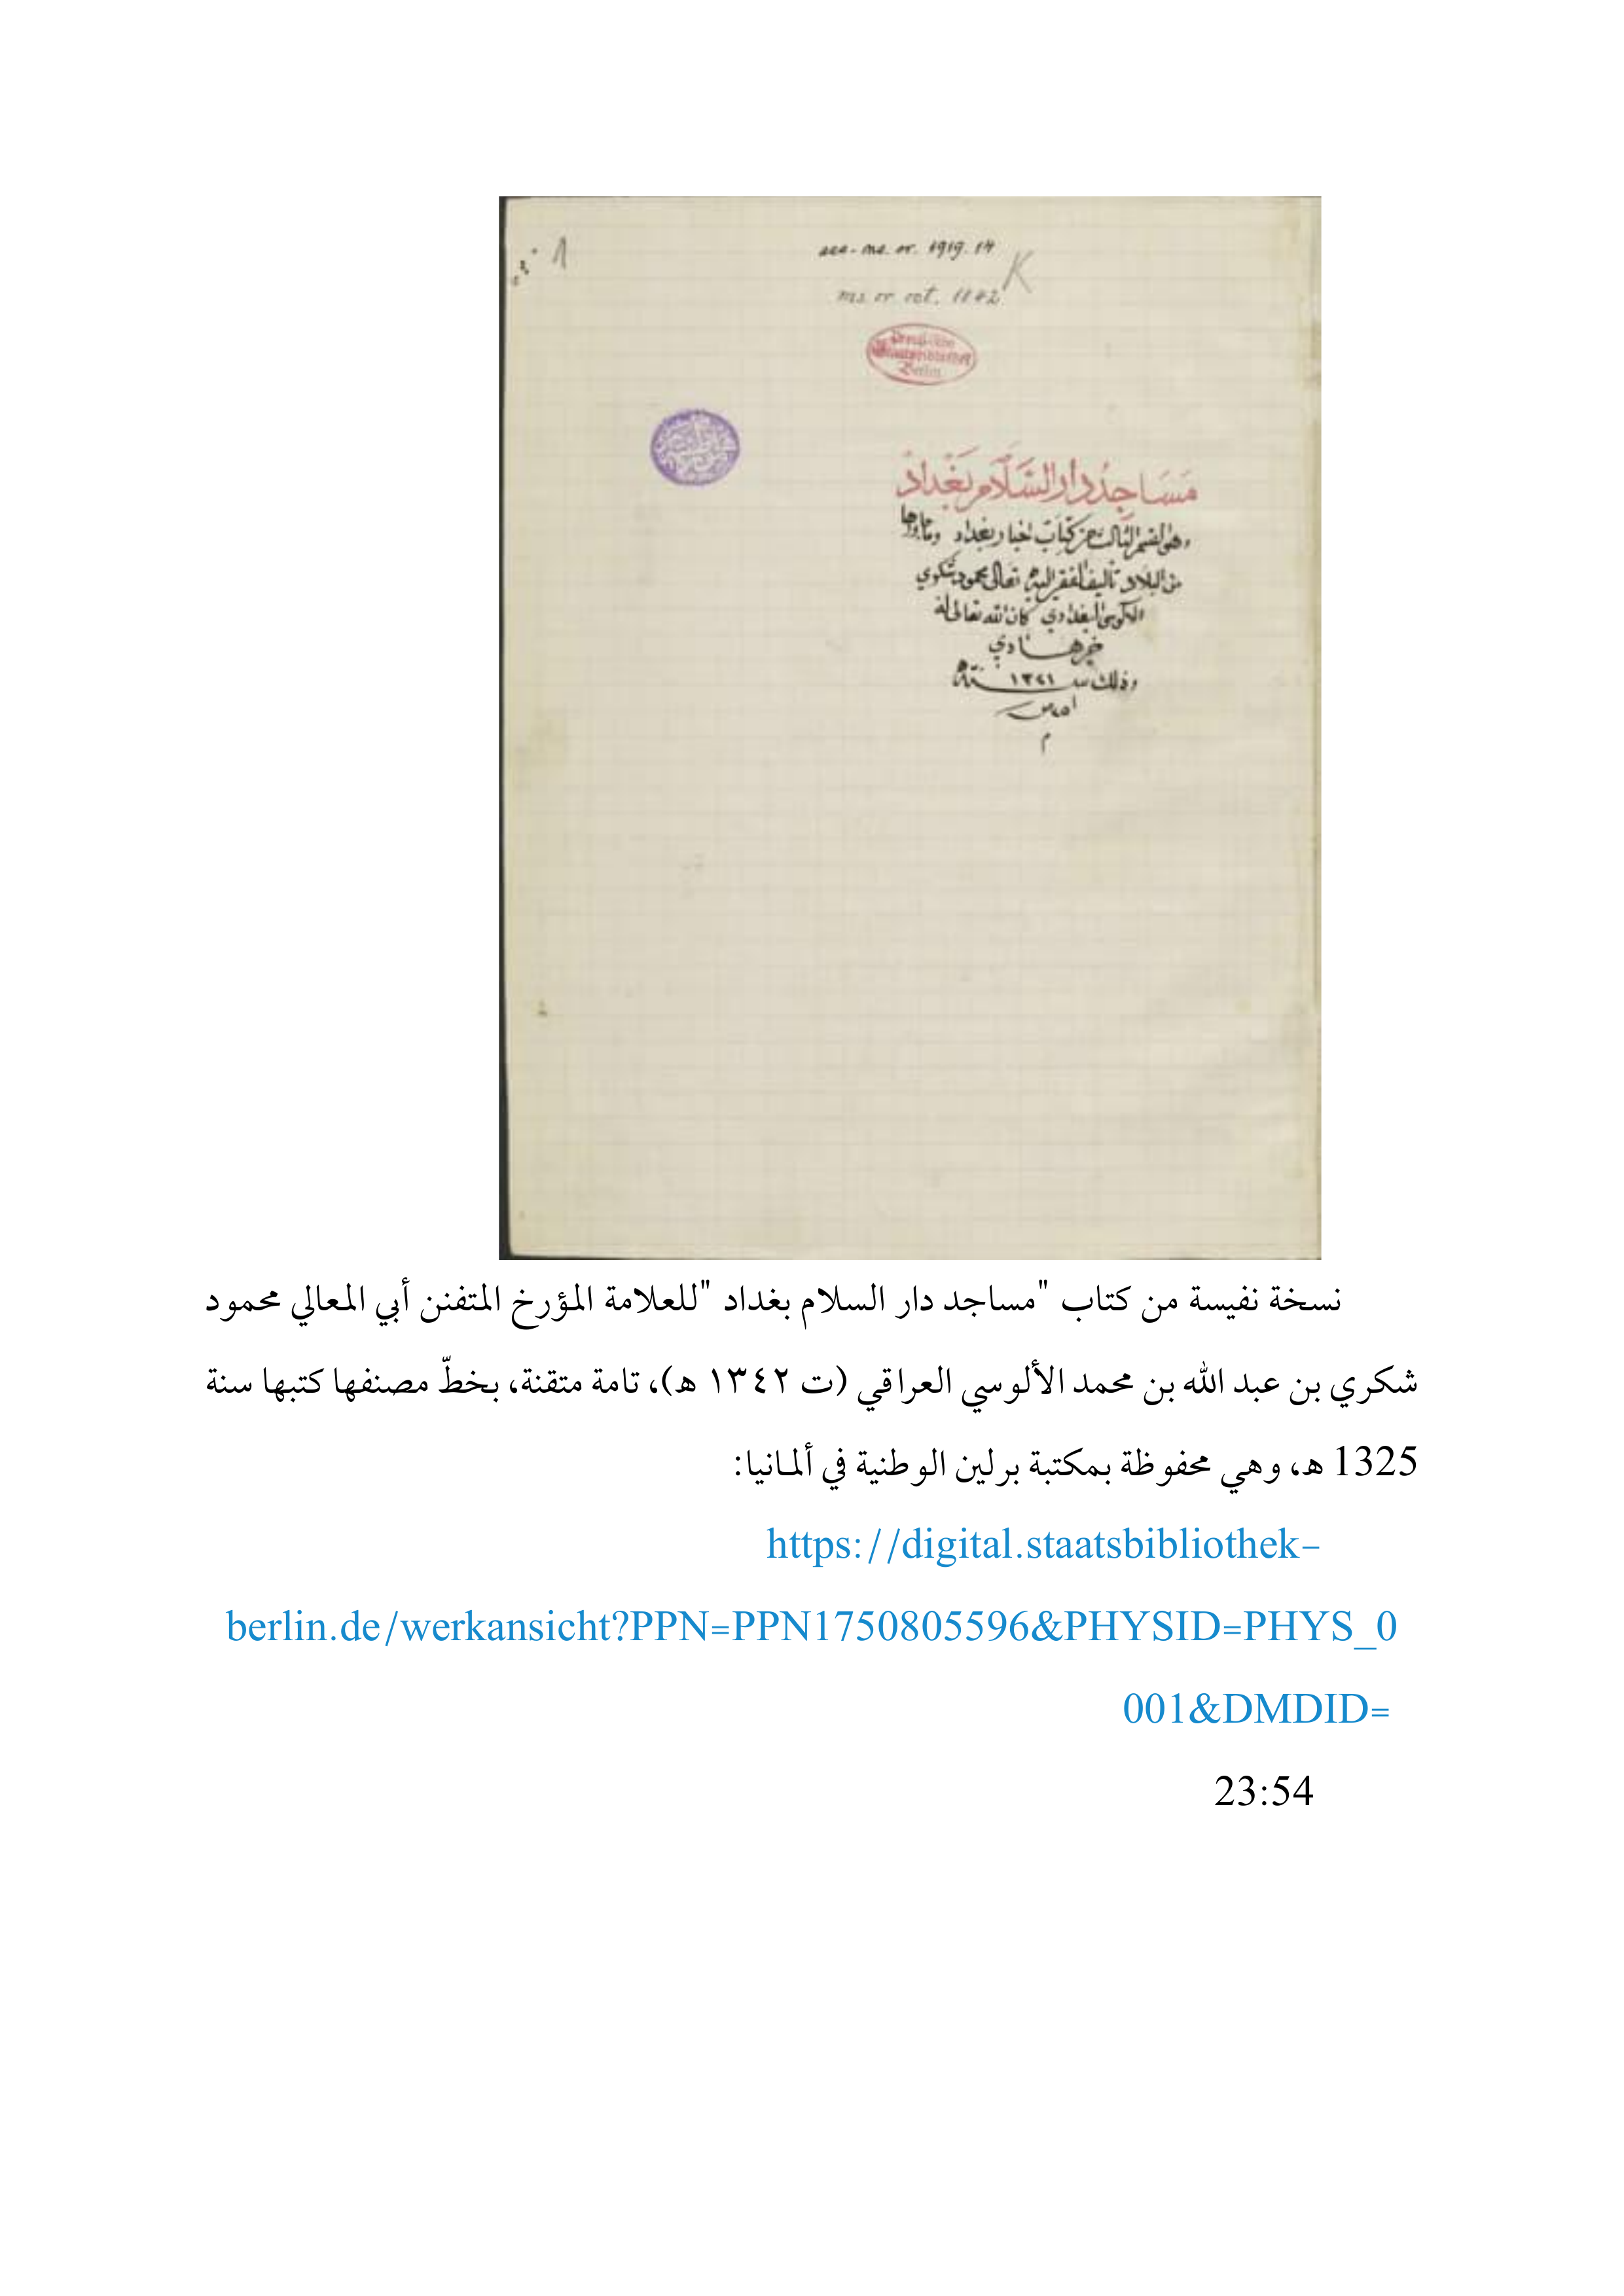 acc. ms. or. 1919. 14
K
ms. or. oct. 1842
Preußische
Staatsbibliothek
Berlin
مَسَاجِدُ دَارِ السَّلَامِ بَغْدَادَ
وهي القسم الثالث من كتاب اخبار بغداد وما جاورها
من البلاد تأليف الفقير اليه تعالى محمود شكري
الآلوسي البغدادي كان الله تعالى له
خير هادي
وذلك سنة ١٣٢١
نسخة نفيسة من كتاب "مساجد دار السلام بغداد "للعلامة المؤرخ المتفنن أبي المعالي محمود
شكري بن عبد الله بن محمد الألوسي العراقي (ت ١٣٤٢ هـ)، تامة متقنة، بخطّ مصنفها كتبها سنة
1325 هـ، وهي محفوظة بمكتبة برلين الوطنية في ألمانيا:
https://digital.staatsbibliothek-
berlin.de/werkansicht?PPN=PPN1750805596&PHYSID=PHYS_0
001&DMDID=
23:54